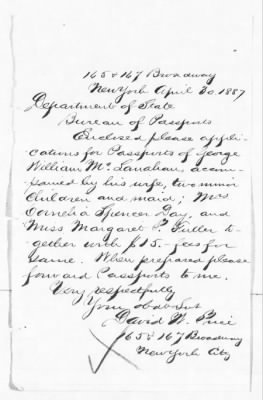 165 & 167 Broadway
New York April 30 1887
Department of State
Bureau of Passports
Enclosed please appli-
cations for Passports of George
William Mc Lanahan, accom-
panied by his wife, two minor
children and maid; Mrs
Cornelia Spencer Day, and
Miss Margaret P. Fuller to-
gether with $15.- fees for
same. When prepared please
forward Passports to me.
Very respectfully
Your obdt Svt
David W. Price
165 & 167 Broadway
New York City